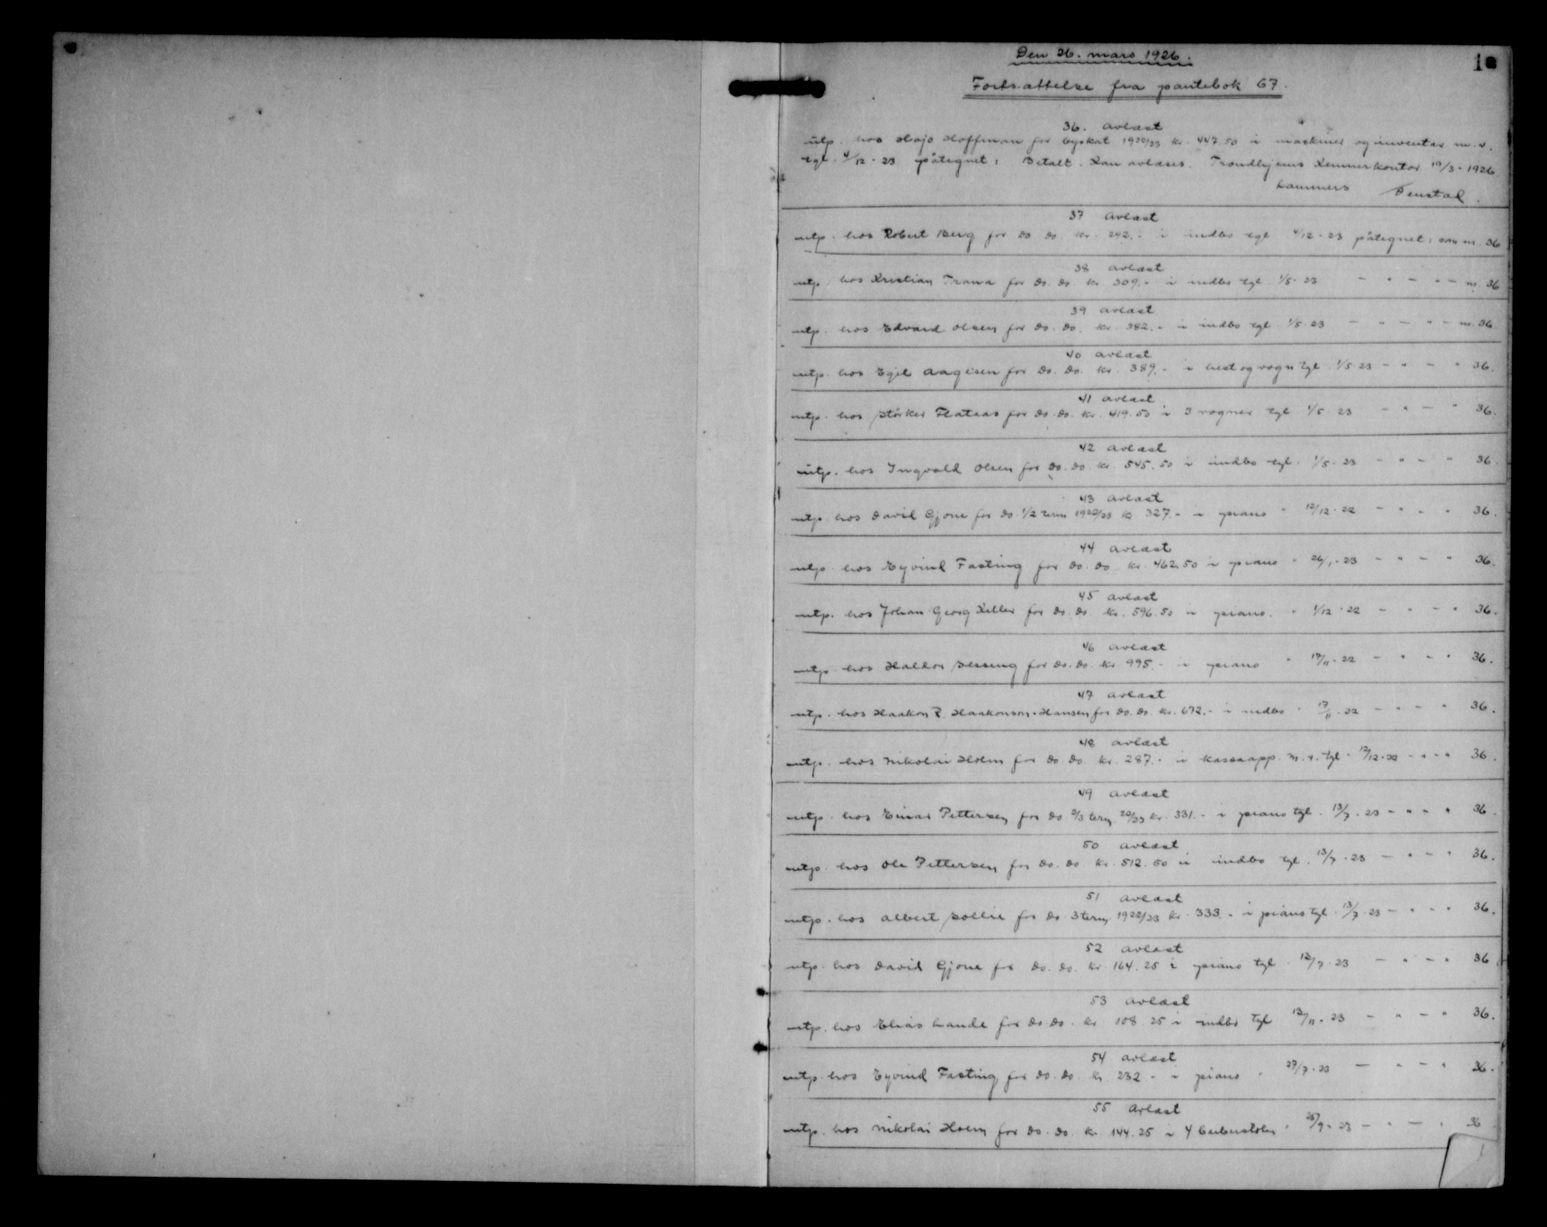 1
Den 26. mars 1926.
Fortsættelse fra pantebok 67.
36. avlæst
utp. hos Hajo Hoffman for byskat 1922/23 kr. 447.50 i maskiner og inventar m.v.
tgl. 4/12-23 påtegnet: Betalt. Kan avlæses. Trondhjems Kemnerkontor 19/3-1926
Lammers
37 avlæst
utp. hos Robert Berg for do do kr. 242.- i indbo tgl 4/12-23 påtegnet: som nr. 36
38 avlæst
utp. hos Kristian Trana for do. do. kr. 309.- i indbo tgl. 1/5-23 - " - " - nr. 36
39 avlæst
utp. hos Edvard Olsen for do. do. kr. 382.- i indbo tgl 1/5-23 - " - " - nr. 36.
40 avlæst
utp. hos Egil Aagesen for do. do. kr. 389.- i hest og vogn tgl. 1/5 23 - " - " 36.
41 avlæst
utp. hos Størker Flataas for do. do. kr. 419.50 i 3 vogner tgl 1/5-23 - " - " 36.
42 avlæst
utp. hos Ingvald Olsen for do. do. kr. 545.50 i indbo tgl. 1/5-23 - " - " 36.
43 avlæst
utp. hos David Gjone for do 1/2 term 1922/23 kr 327.- i piano " 12/12-22 - " - " 36.
44 avlæst
utp. hos Eyvind Fasting for do. do. kr. 462.50 i piano " 26/1-23 - " - " 36.
45 avlæst
utp. hos Johan Georg Keller for do. do. kr. 596.50 i piano. " 1/12-22 - " - " 36.
46 avlæst
utp. hos Halvor for do. do. kr 995.- i piano " 17/11-22 - " - " 36.
47 avlæst
utp. hos Haakon R. Haakonson-Hansen for do. do. kr. 672.- i indbo " 17/11-22 - " - " 36.
48 avlæst
utp. hos Nikolai Holm for do. do. kr. 287.- i kassaapp. m.v. tgl. 12/12-22 - " - " 36.
49 avlæst
utp. hos Einar Pettersen for do 2/3 term 22/23 kr. 331.- i piano tgl. 13/7-23 - " - " 36.
50 avlæst
utp. hos Ole Pettersen for do. do kr. 512.50 i indbo tgl. 13/7-23 - " - " 36.
51 avlæst
utp. hos Albert Sollie for do 3 term 1922/23 kr. 333.- i piano tgl. 13/7-23 - " - " 36.
52 avlæst
utp. hos David Gjone for do. do. kr 164.25 i piano tgl. 12/7-23 - " - " 36
53 avlæst
utp. hos Elias Lande for do do. kr. 108.25 i indbo tgl 12/11-23 - " - " 36.
54 avlæst
utp. hos Eyvind Fasting for do. do. kr. 232.- i piano " 27/7-23 - " - " 36.
55 avlæst
utp. hos Nikolai Holm for do. do. kr. 144.25 i 4 barberstoler " 26/9-23 - " - " 36